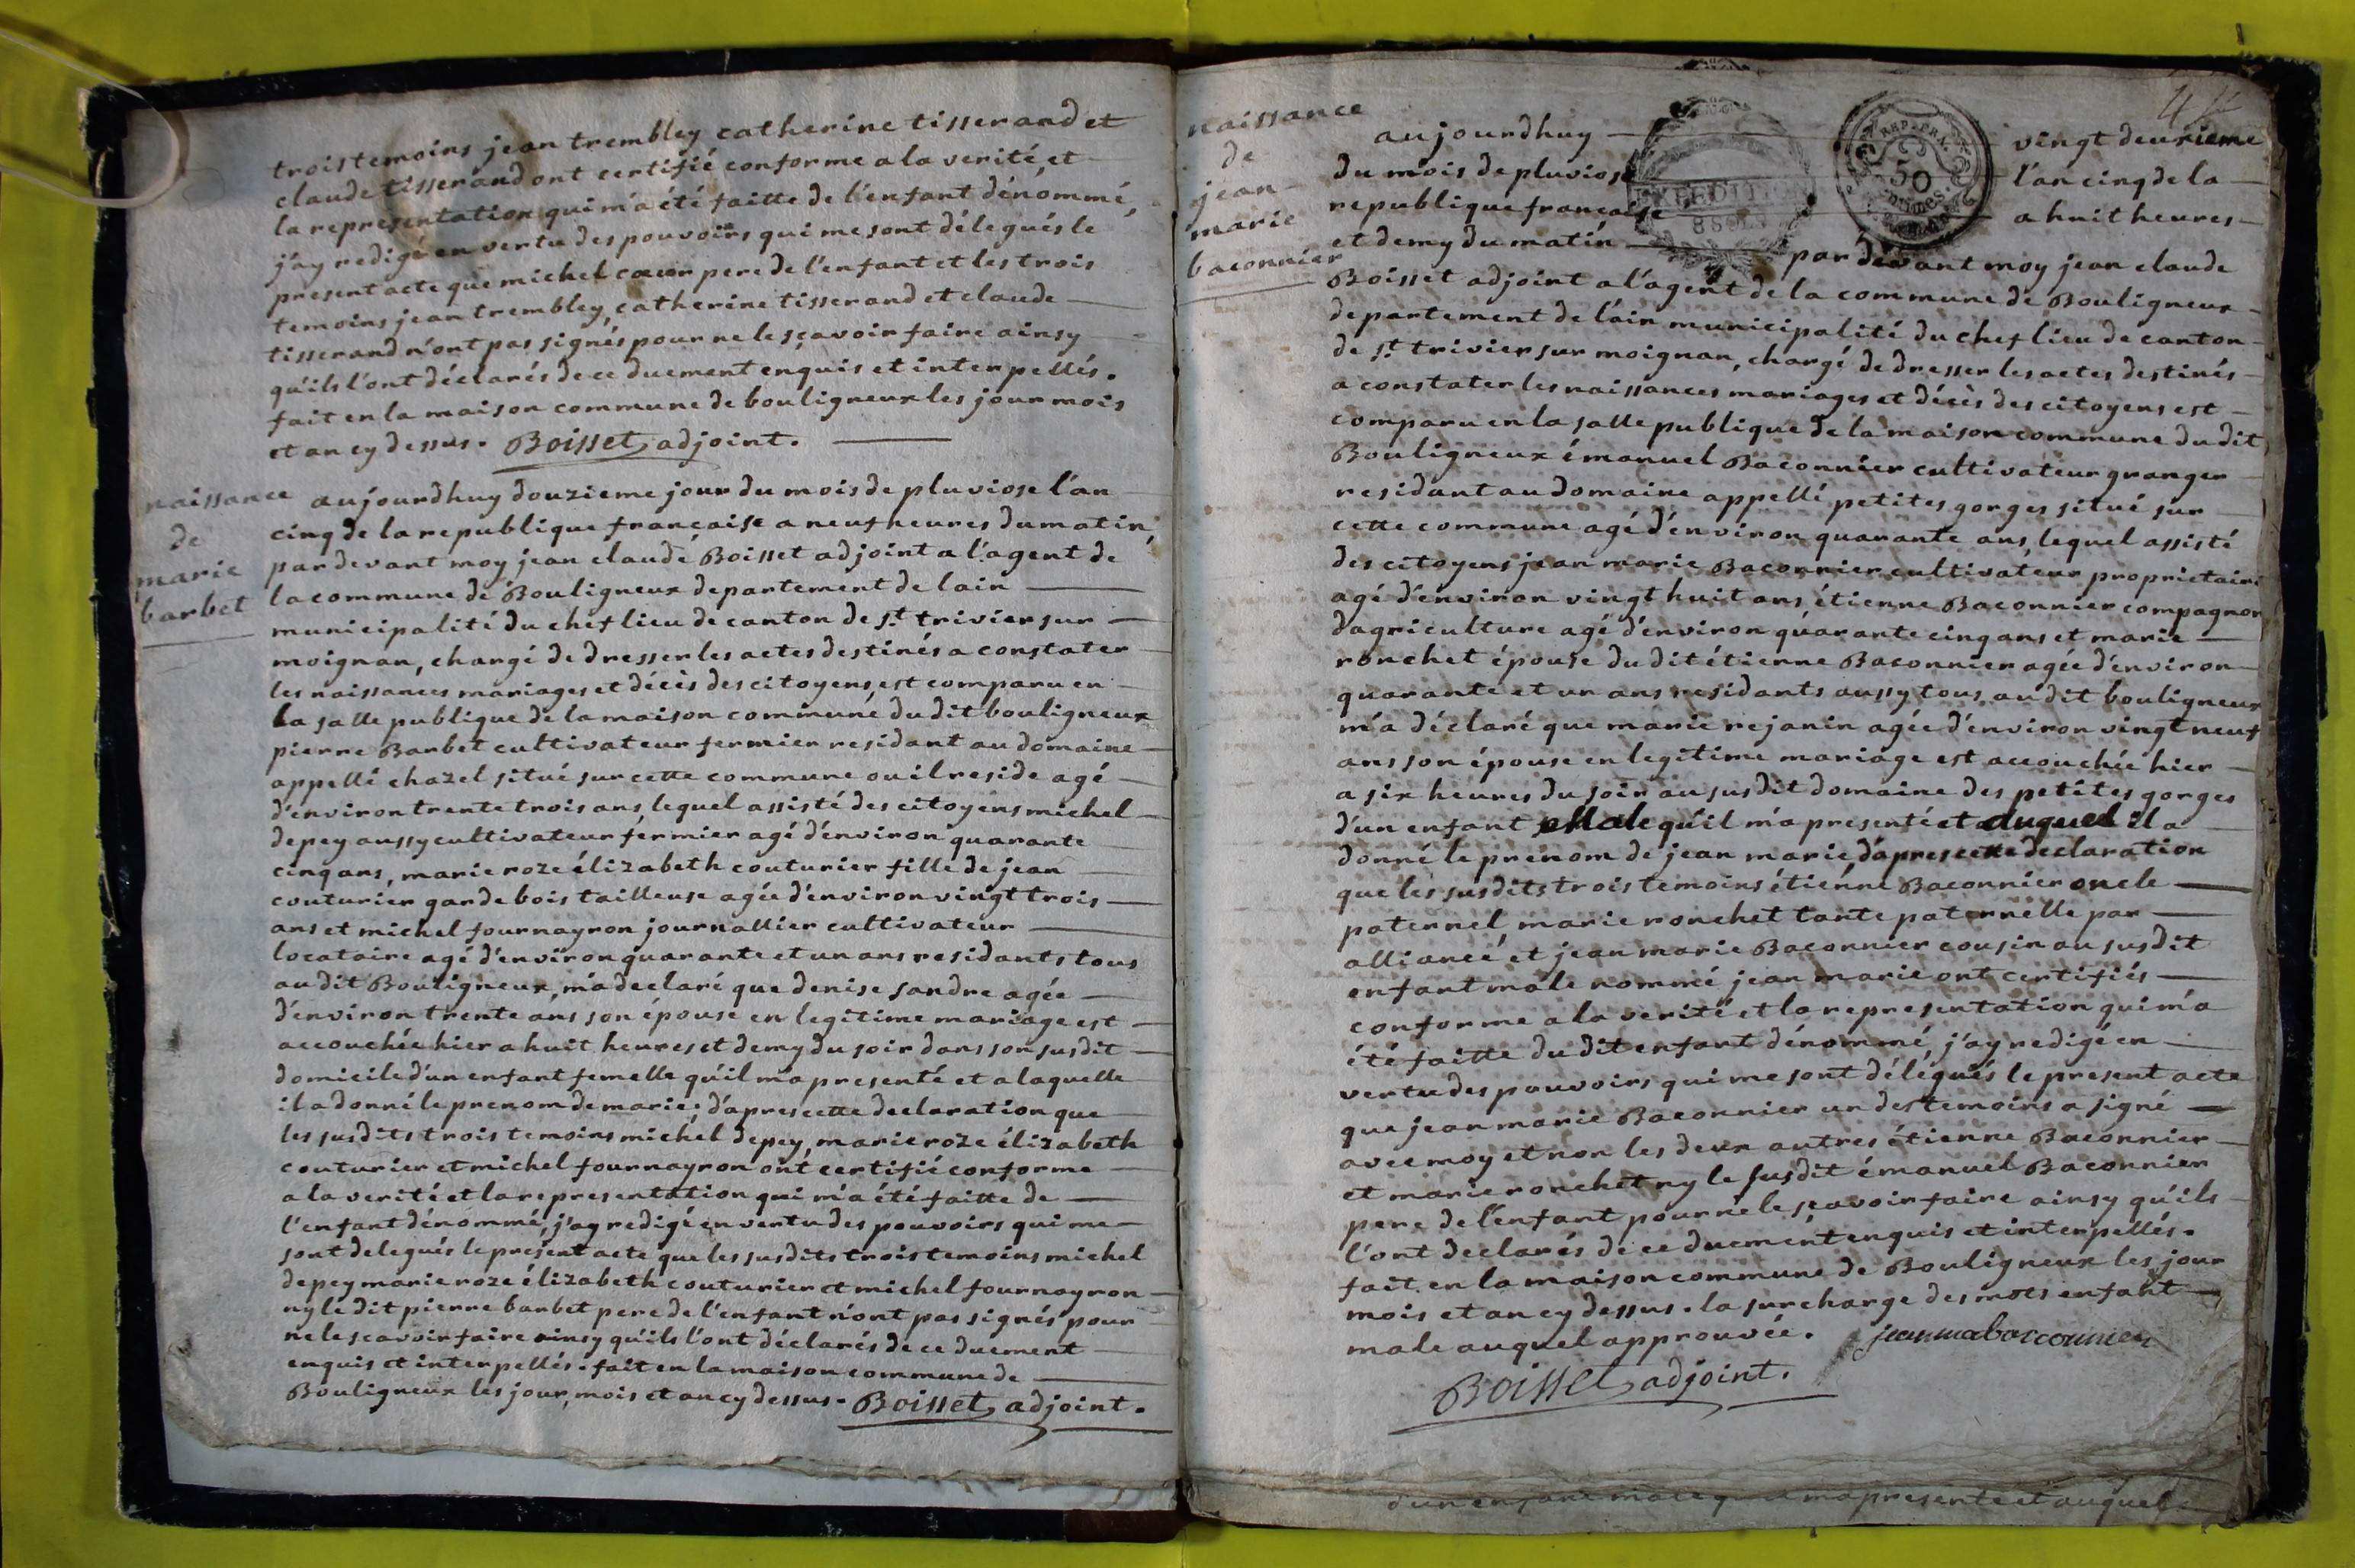 trois temoins jean trembley catherine tisserand et
claude tisserand ont certifié conforme a la verité, et
la representation qui m'a été faitte de l'enfant dénommé,
j'ay redigé en vertu des pouvoirs qui me sont délegués le
present acte que michel cœur pere de l'enfant et les trois
temoins jean trembley, catherine tisserand et claude
tisserand n'ont pas signés pour ne le sçavoir faire ainsy
qu'ils l'ont déclarés de ce duement enquis et interpellés.
fait en la maison commune de bouligneux les jour mois
et an cy dessus. Boisset adjoint.
naissance
de
marie
barbet
aujourdhuy douzieme jour du mois de pluviose l'an
cinq de la republique française a neuf heures du matin,
pardevant moy jean claude Boisset adjoint a l'agent de
la commune de Bouligneux departement de lain
municipalité du chef lieu de canton de st. trivier sur
moignan, chargé de dresser les actes destinés a constater
les naissances mariages et décès des citoyens, est comparu en
la salle publique de la maison commune, du dit bouligneux
pierre Barbet cultivateur fermier residant au domaine
appellé chazel situé sur cette commune ou il reside agé
d'environ trente trois ans, lequel assisté des citoyens michel
depey aussy cultivateur fermier agé d'environ quarante
cinq ans, marie roze élizabeth couturier fille de jean
couturier garde bois tailleuse agée d'environ vingt trois
ans et michel fournayron journallier cultivateur
locataire agé d'environ quarante et un ans residants tous
au dit Bouligneux, m'a declaré que denise sandre agée
d'environ trente ans son épouse en legitime mariage est
accouchée hier a huit heures et demy du soir dans son susdit
domicile d'un enfant femelle qu'il m'a presenté et a laquelle
il a donné le prenom de marie; d'apres cette declaration que
les susdits trois temoins michel depey, marie roze élizabeth
couturier et michel fournayron ont certifié conforme
a la verité et la representation qui m'a été faitte de
l'enfant dénommé, j'ay redigé en vertu des pouvoirs qui me
sont delegués le present acte que les susdits trois temoins michel
depey marie roze élizabeth couturier et michel fournayron
ny le dit pierre barbet pere de l'enfant n'ont pas signés pour
ne le scavoir faire ainsy qu'ils l'ont déclarés de ce duement
enquis et interpellés. fait en la maison commune de
Bouligneux les jour, mois et an cy dessus. Boisset adjoint.
naissance
de
jean
marie
baconnier
aujourdhuy vingt deuxieme
du mois de pluviose l'an cinq de la
republique française a huit heures
et demy du matin par devant moy jean claude
REP. FRA.
50
Boisset adjoint a l'agent de la commune de Bouligneux
departement de l'ain municipalité du chef lieu de canton
de st. trivier sur moignan, chargé de dresser les actes destinés
a constater les naissances mariages et décès des citoyens est
comparu en la salle publique de la maison commune du dit
Bouligneux émanuel Baconnier cultivateur granger
residant au domaine appellé petites gorges situé sur
cette commune agé d'environ quarante ans, lequel assisté
des citoyens jean marie Baconnier cultivateur proprietaire
agé d'environ vingt huit ans, étienne Baconnier compagnon
d'agriculture agé d'environ quarante cinq ans et marie
ronchet épouse du dit étienne Baconnier agée d'environ
quarante et un ans residants aussy tous au dit bouligneux
m'a déclaré que marie rejanin agée d'environ vingt neuf
ans son épouse en legitime mariage est accouchée hier
a six heures du soir au susdit domaine des petites gorges
d'un enfant male qu'il m'a presenté et auquel il a
donné le prenom de jean marie, d'apres cette declaration
que les susdits trois temoins étienne Baconnier oncle
paternel, marie ronchet tante paternelle par
alliance, et jean marie Baconnier cousin au susdit
enfant male nommé jean marie ont certifiés
conforme a la verité et la representation qui m'a
été faitte du dit enfant dénommé, j'ay redigé en
vertu des pouvoirs qui me sont délégués le present acte
que jean marie Baconnier un des temoins a signé
avec moy et non les deux autres étienne Baconnier
et marie ronchet ny le susdit émanuel Baconnier
pere de l'enfant pour ne le sçavoir faire ainsy qu'ils
l'ont declarés de ce duement enquis et interpellés.
fait en la maison commune de Bouligneux les jour
mois et an cy dessus. la surcharge des mots enfant
male auquel approuvée.
Boisset adjoint.
d'un enfant male m'a presenté et auquel